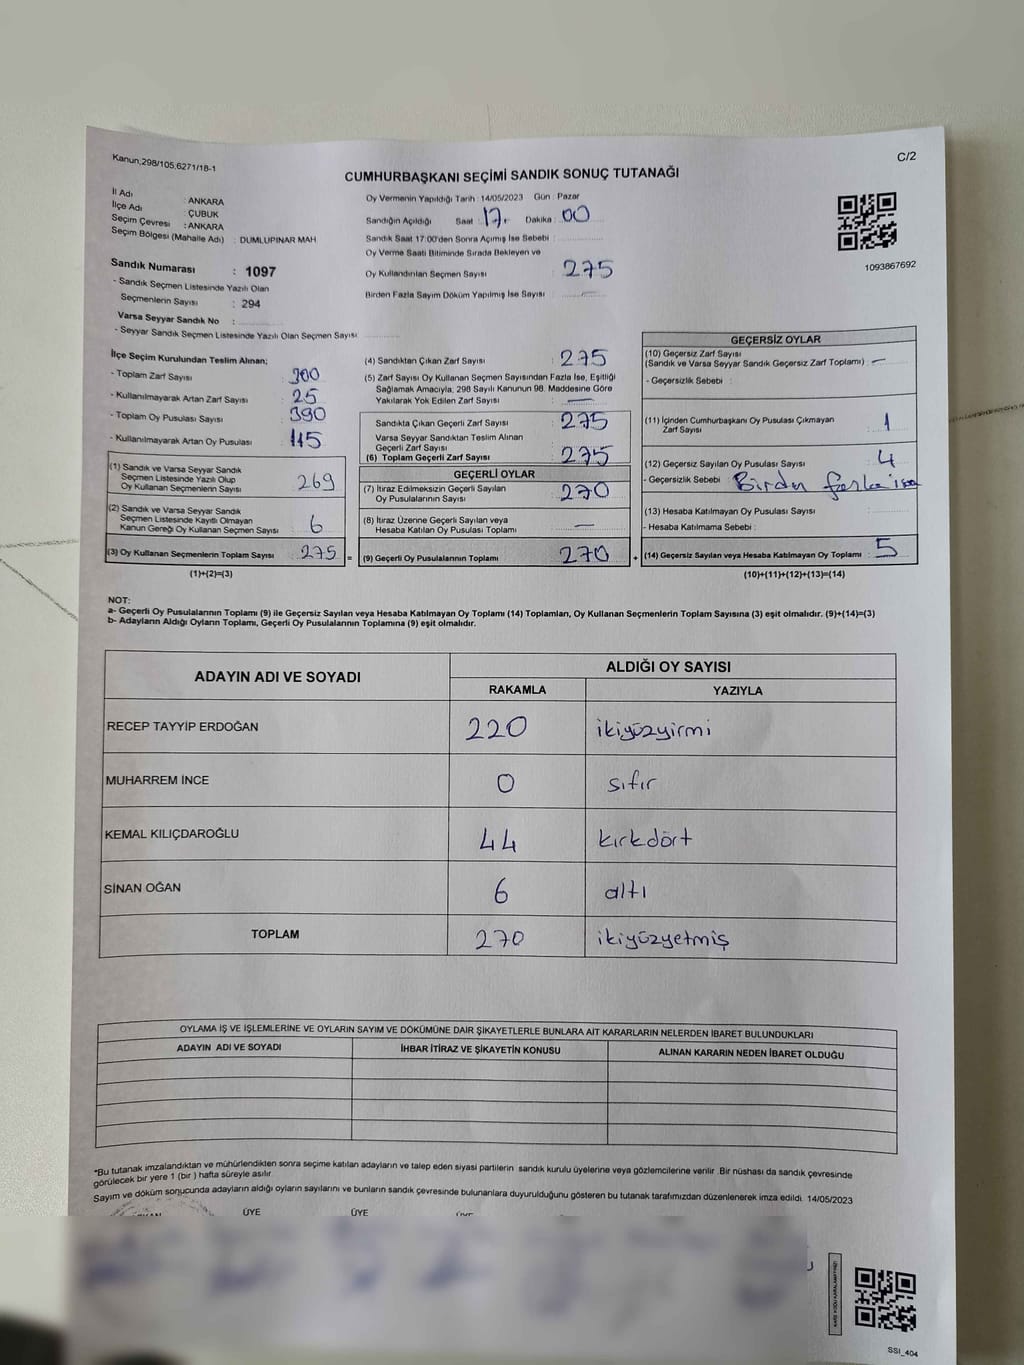 Kanun;298/105,6271/18-1
C/2
CUMHURBAŞKANI SEÇİMİ SANDIK SONUÇ TUTANAĞI
İl Adı : ANKARA
İlçe Adı : ÇUBUK
Seçim Çevresi : ANKARA
Seçim Bölgesi (Mahalle Adı) : DUMLUPINAR MAH
Sandık Numarası : 1097
- Sandık Seçmen Listesinde Yazılı Olan
Seçmenlerin Sayısı : 294
Varsa Seyyar Sandık No :
- Seyyar Sandık Seçmen Listesinde Yazılı Olan Seçmen Sayısı
Oy Vermenin Yapıldığı Tarih : 14/05/2023 Gün : Pazar
Sandığın Açıldığı Saat : 17 Dakika : 00
Sandık Saat 17:00'den Sonra Açımış İse Sebebi :
Oy Verme Saati Bitiminde Sırada Bekleyen ve
Oy Kullandırılan Seçmen Sayısı : 275
Birden Fazla Sayım Döküm Yapılmış İse Sayısı : —
1093867692
İlçe Seçim Kurulundan Teslim Alınan;
- Toplam Zarf Sayısı : 300
- Kullanılmayarak Artan Zarf Sayısı : 25
- Toplam Oy Pusulası Sayısı : 390
- Kullanılmayarak Artan Oy Pusulası : 115
(1) Sandık ve Varsa Seyyar Sandık
Seçmen Listesinde Yazılı Olup
Oy Kullanan Seçmenlerin Sayısı : 269
(2) Sandık ve Varsa Seyyar Sandık
Seçmen Listesinde Kayıtlı Olmayan
Kanun Gereği Oy Kullanan Seçmen Sayısı : 6
(3) Oy Kullanan Seçmenlerin Toplam Sayısı : 275 =
(1)+(2)=(3)
(4) Sandıktan Çıkan Zarf Sayısı : 275
(5) Zarf Sayısı Oy Kullanan Seçmen Sayısından Fazla İse, Eşitliği
Sağlamak Amacıyla; 298 Sayılı Kanunun 98. Maddesine Göre
Yakılarak Yok Edilen Zarf Sayısı : —
Sandıkta Çıkan Geçerli Zarf Sayısı : 275
Varsa Seyyar Sandıktan Teslim Alınan
Geçerli Zarf Sayısı :
(6) Toplam Geçerli Zarf Sayısı : 275
GEÇERLİ OYLAR
(7) İtiraz Edilmeksizin Geçerli Sayılan
Oy Pusulalarının Sayısı : 270
(8) İtiraz Üzerine Geçerli Sayılan veya
Hesaba Katılan Oy Pusulası Toplamı : —
(9) Geçerli Oy Pusulalarının Toplamı : 270 +
GEÇERSİZ OYLAR
(10) Geçersiz Zarf Sayısı
(Sandık ve Varsa Seyyar Sandık Geçersiz Zarf Toplamı) : —
- Geçersizlik Sebebi :
(11) İçinden Cumhurbaşkanı Oy Pusulası Çıkmayan
Zarf Sayısı : 1
(12) Geçersiz Sayılan Oy Pusulası Sayısı : 4
- Geçersizlik Sebebi : Birden
(13) Hesaba Katılmayan Oy Pusulası Sayısı :
- Hesaba Katılmama Sebebi :
(14) Geçersiz Sayılan veya Hesaba Katılmayan Oy Toplamı : 5
(10)+(11)+(12)+(13)=(14)
NOT:
a- Geçerli Oy Pusulalarının Toplamı (9) ile Geçersiz Sayılan veya Hesaba Katılmayan Oy Toplamı (14) Toplamları, Oy Kullanan Seçmenlerin Toplam Sayısına (3) eşit olmalıdır. (9)+(14)=(3)
b- Adayların Aldığı Oyların Toplamı, Geçerli Oy Pusulalarının Toplamına (9) eşit olmalıdır.
ADAYIN ADI VE SOYADI ALDIĞI OY SAYISI
RAKAMLA YAZIYLA
RECEP TAYYİP ERDOĞAN 220 ikiyüzyirmi
MUHARREM İNCE 0 sıfır
KEMAL KILIÇDAROĞLU 44 kırkdört
SİNAN OĞAN 6 altı
TOPLAM 270 ikiyüzyetmiş
OYLAMA İŞ VE İŞLEMLERİNE VE OYLARIN SAYIM VE DÖKÜMÜNE DAİR ŞİKAYETLERLE BUNLARA AİT KARARLARIN NELERDEN İBARET BULUNDUKLARI
ADAYIN ADI VE SOYADI İHBAR İTİRAZ VE ŞİKAYETİN KONUSU ALINAN KARARIN NEDEN İBARET OLDUĞU
*Bu tutanak imzalandıktan ve mühürlendikten sonra seçime katılan adayların ve talep eden siyasi partilerin sandık kurulu üyelerine veya gözlemcilerine verilir. Bir nüshası da sandık çevresinde
görülecek bir yere 1 (bir) hafta süreyle asılır.
Sayım ve döküm sonucunda adayların aldığı oyların sayılarını ve bunların sandık çevresinde bulunanlara duyurulduğunu gösteren bu tutanak tarafımızdan düzenlenerek imza edildi. 14/05/2023
ÜYE ÜYE
SSI_404